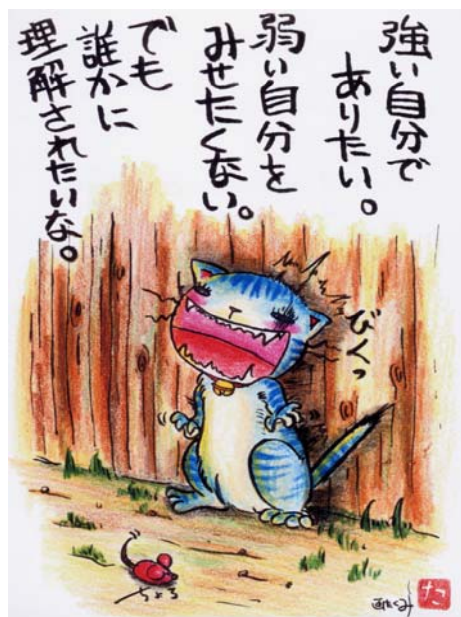 強い自分で
ありたい。
弱い自分を
みせたくない。
でも
誰かに
理解されたいな。
びくっ
ちょろ
画たくみ
た